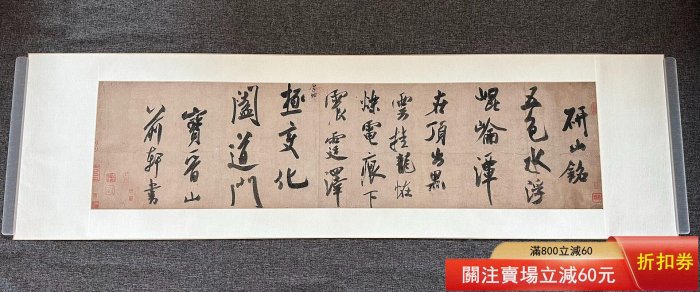 研山銘
五色水浮
崐崘潭
在頂出黑
雲挂龍恠
爍電痕下
震霆澤
極變化
闔道門
寶晉山
前軒書
滿800立減60
關注賣場立減60元
折扣券